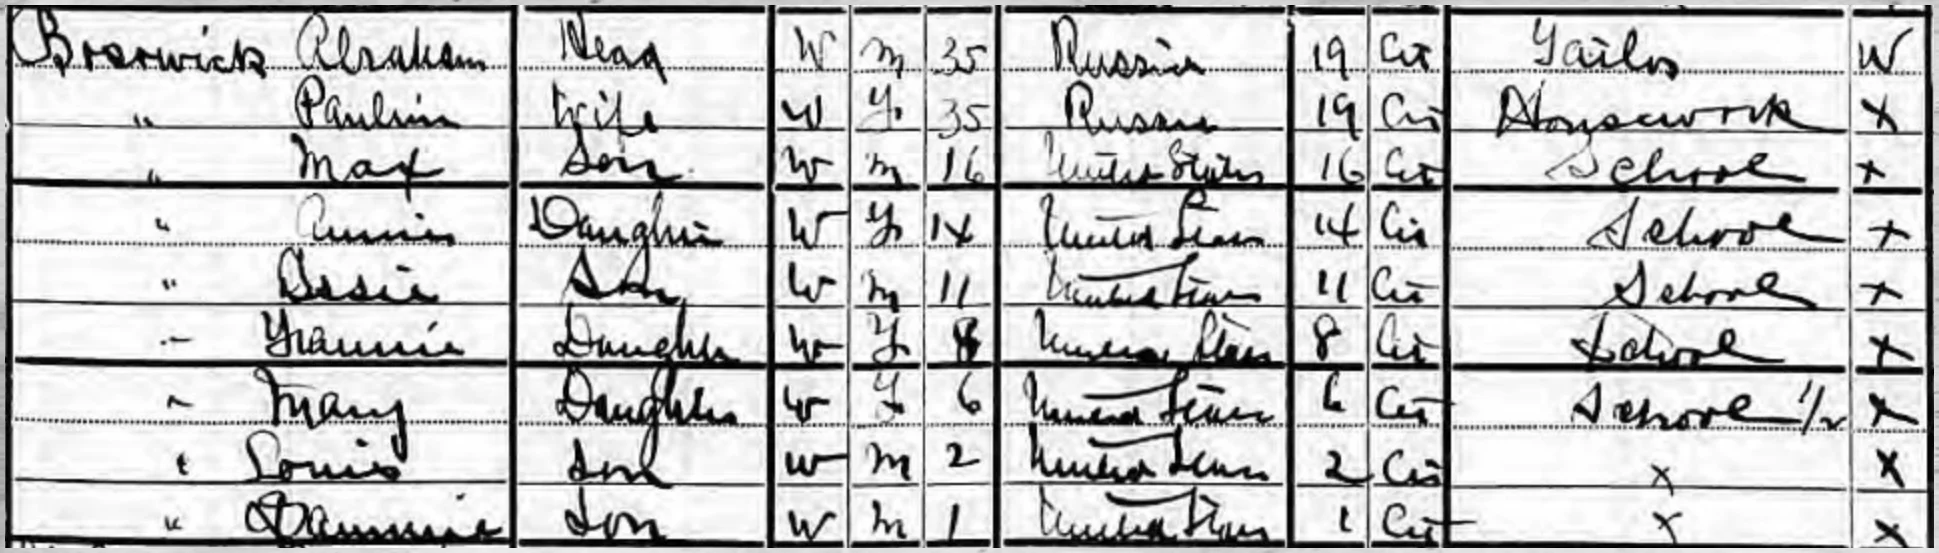 Broswick Abraham Head W M 35 Russia 19 Cit Tailor W
" Paulin Wife W F 35 Russia 19 Cit Housework X
" Max Son W M 16 United States 16 Cit School X
" Annie Daughter W F 14 United States 14 Cit School X
" Son W M 11 United States 11 Cit School X
" Fannie Daughter W F 8 United States 8 Cit School X
" Mary Daughter W F 6 United States 6 Cit School 1/2 X
" Louis Son W M 2 United States 2 Cit X X
" Son W M 1 United States 1 Cit X X